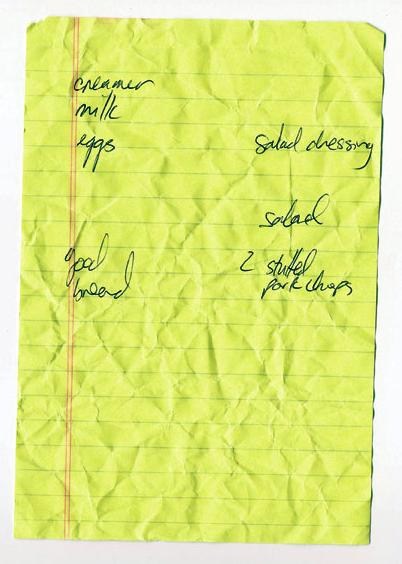 creamer
milk
eggs
good
bread
salad dressing
salad
2 stuffed
pork chops